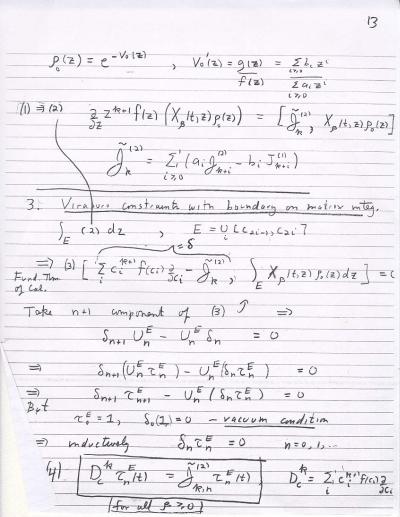 13
ρ₀(z) = e^{-V₀(z)} , V₀'(z) = g(z)/f(z) = Σ_{i≥0} b_i z^i / Σ_{i≥0} a_i z^i
(1) ⇒ (2) ∂/∂z z^{k+1} f(z) (X_β(t,z) ρ₀(z)) = [ J̃_k^{(2)}, X_β(t,z) ρ₀(z) ]
J̃_k^{(2)} = Σ_{i≥0} (a_i J_{k+i}^{(2)} - b_i J_{k+i}^{(1)})
3. Virasoro constraints with boundary on matrix integ.
∫_E (2) dz , E = ∪_i [c_{2i-1}, c_{2i}]
= δ
⇒ (3) [ Σ_i c_i^{k+1} f(c_i) ∂/∂c_i - J̃_k^{(2)}, ∫_E X_β(t,z) ρ₀(z) dz ] = 0
Fund. Thm
of Cal.
Take n+1 component of (3) ⇒
δ_{n+1} U_n^E - U_n^E δ_n = 0
⇒ δ_{n+1} (U_n^E τ_n^E) - U_n^E (δ_n τ_n^E) = 0
⇒ δ_{n+1} τ_{n+1}^E - U_n^E (δ_n τ_n^E) = 0
But
τ₀^E = 1, δ₀(1) = 0 - vacuum condition
⇒ inductively δ_n τ_n^E = 0 n = 0, 1, ...
(4) D_c^k τ_n^E(t) = J̃_{k,n}^{(2)} τ_n^E(t) D_c^k = Σ_i c_i^{k+1} f(c_i) ∂/∂c_i